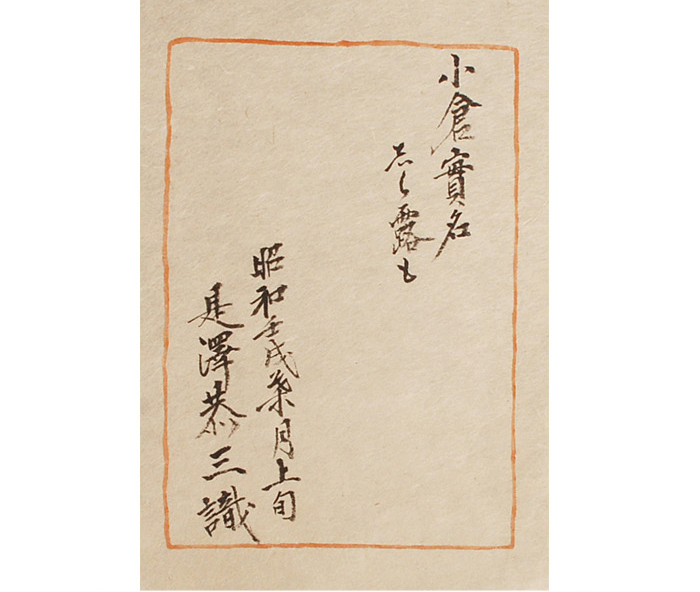 小倉實名
志ら露も
昭和壬戌葉月上旬
是澤恭三識